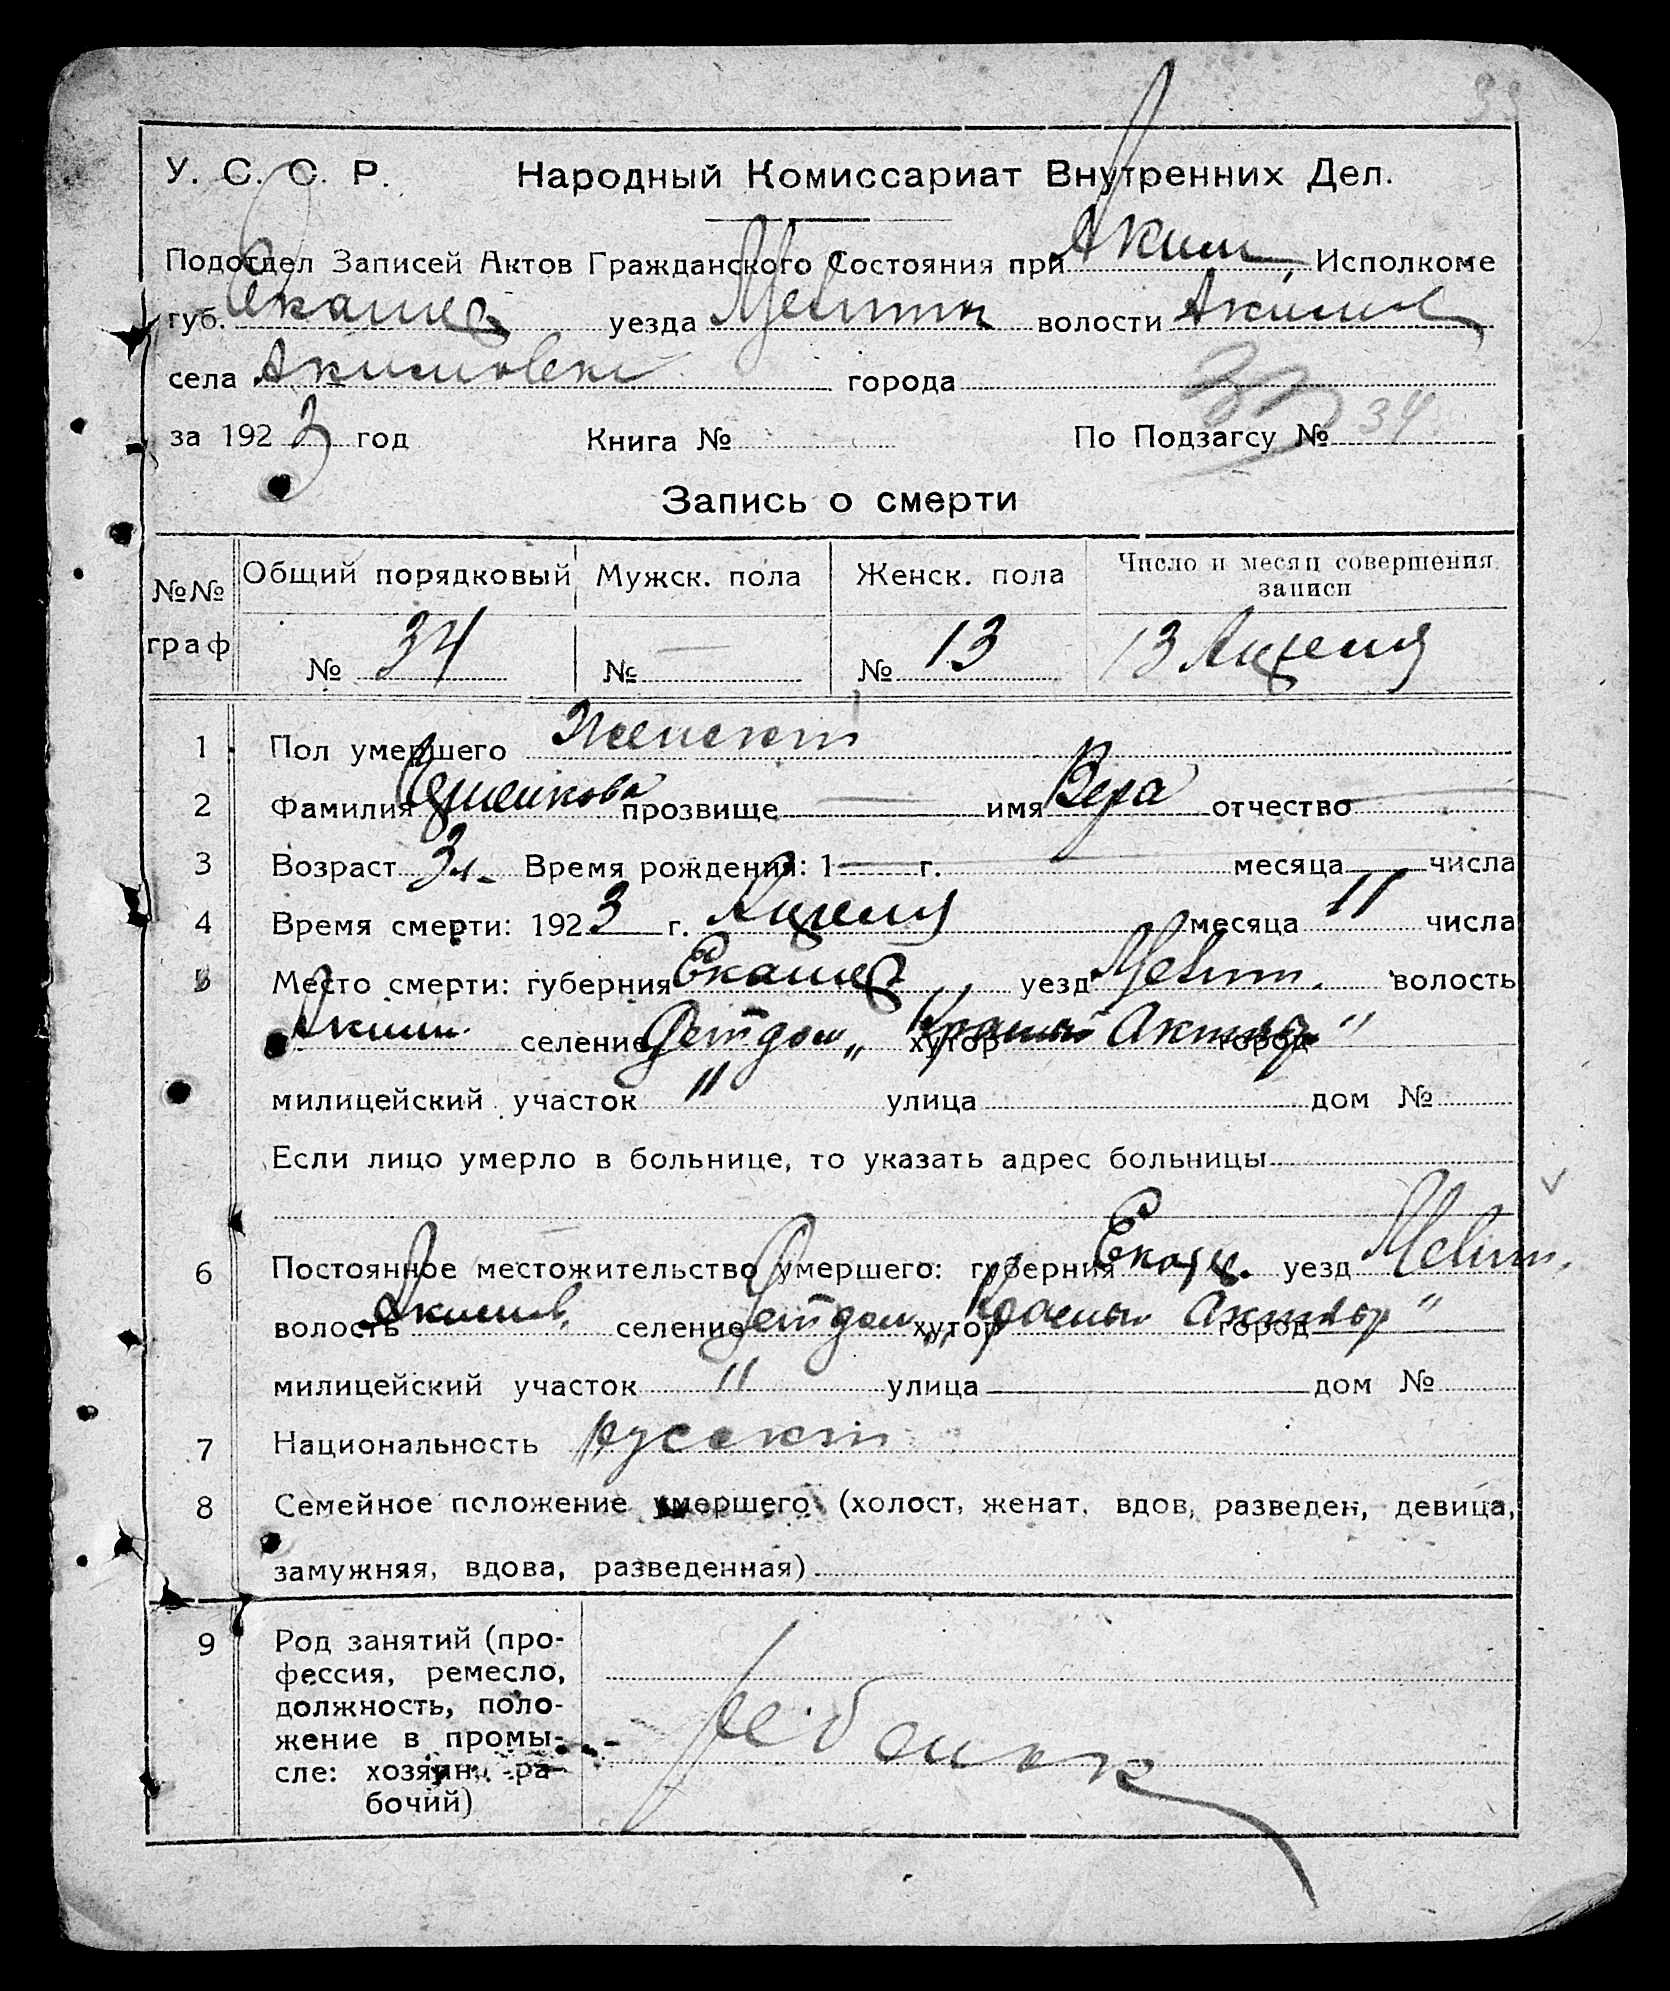 33
У. С. С. Р. Народный Комиссариат Внутренних Дел.
Подотдел Записей Актов Гражданского Состояния при Аким. Исполкоме
губ. Екатер уезда Мелитоп волости Акимов
села Акимовки города
за 1923 год Книга № По Подзагсу № 34
Запись о смерти
№№ граф Общий порядковый Мужск. пола Женск. пола Число и месяц совершения записи
№ 34 № — № 13 13 Апреля
1 Пол умершего Женский
2 Фамилия прозвище — имя Вера отчество —
3 Возраст 3 л. Время рождения: 1 — г. месяца — числа
4 Время смерти: 1923 г. Апреля месяца 11 числа
5 Место смерти: губерния Екатер уезд Мелит. волость
Аким. селение Детдом „ хутор Красный Октябрь город "
милицейский участок " улица дом №
Если лицо умерло в больнице, то указать адрес больницы
6 Постоянное местожительство умершего: губерния Екатер. уезд Мелит.
волость Акимов. селение Детдом „ хутор Красный Октябрь город "
милицейский участок " улица — дом №
7 Национальность русский
8 Семейное положение умершего (холост, женат, вдов, разведен, девица,
замужняя, вдова, разведенная)
9 Род занятий (про-
фессия, ремесло,
должность, поло-
жение в промы-
сле: хозяин, ра-
бочий)
ребенок